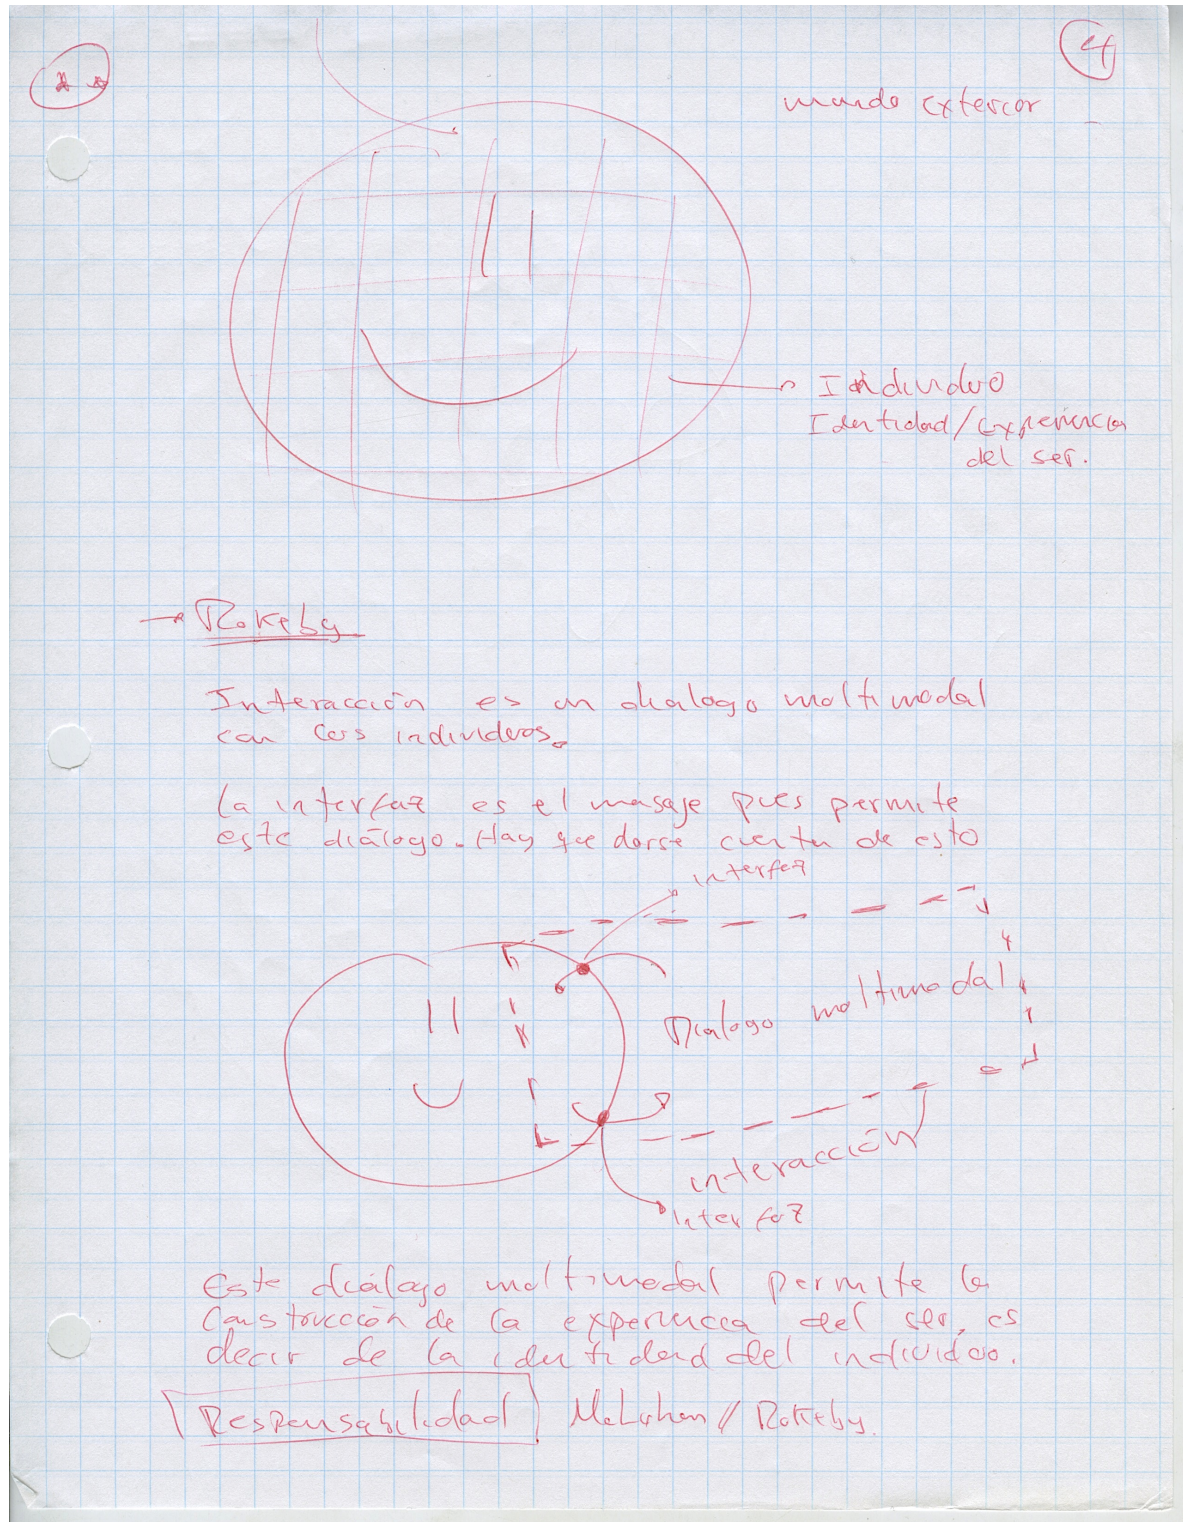 4
* *
mundo exterior
Individuo
Identidad/experiencia
del ser.
Rokeby
Interacción es un dialogo multimodal
con los individuos.
La interfaz es el masaje pues permite
este diálogo. Hay que darse cuenta de esto
interfaz
Dialogo multimodal
interacción
interfaz
Este diálogo multimodal permite la
construcción de la experiencia del ser, es
decir de la identidad del individuo.
Responsabilidad McLuhan // Rokeby.